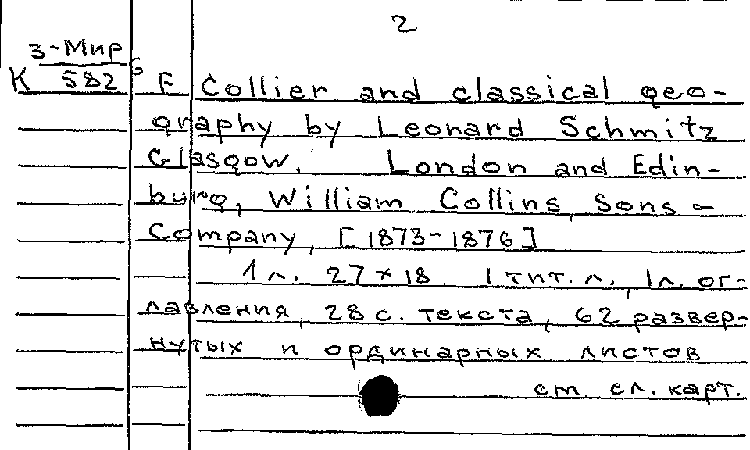 2
3-Мир
К 582 6 F Collier and classical geo-
graphy by Leonard Schmitz
Glasgow. London and Edin-
burg, William Collins, Sons a
Company, [1873-1876]
1 л. 27×18 1 тит. л., 1 л. ог-
лавления, 28 с. текста, 62 развер-
нутых и ординарных листов
см. сл. карт.